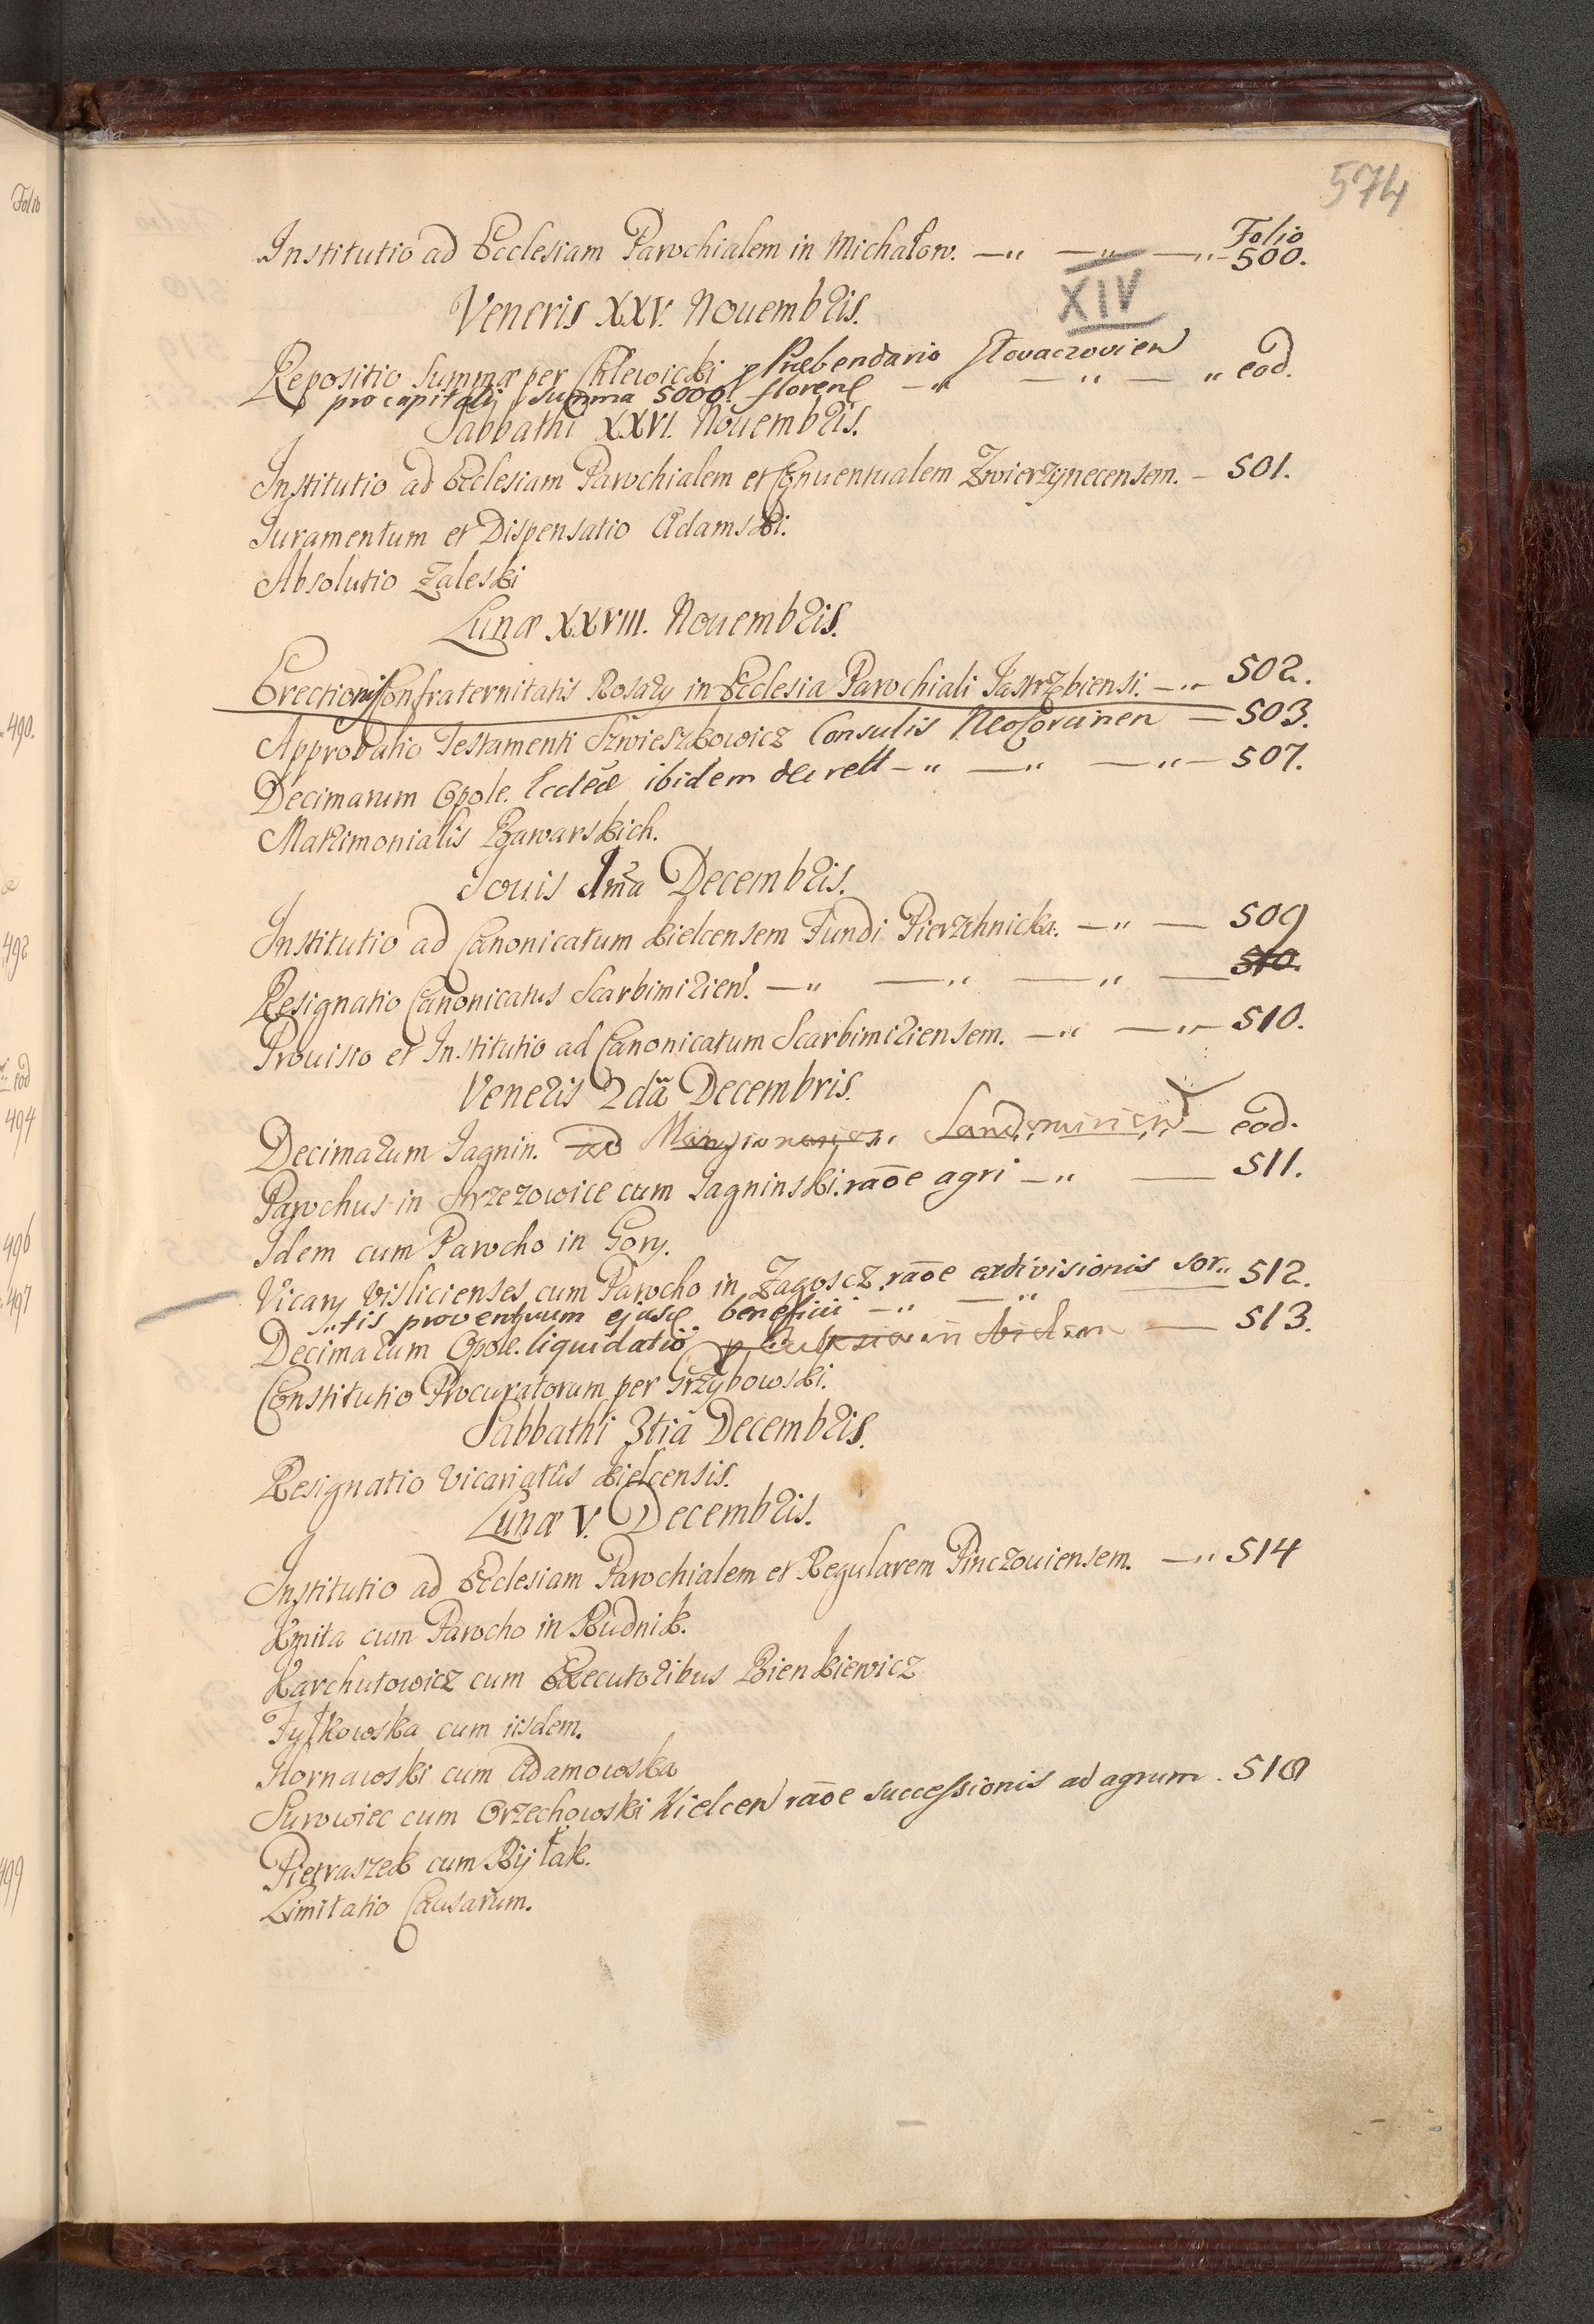 574
Folio
Institutio ad Ecclesiam Parochialem in Michałow. 500.
XIV
Veneris XXV. Nouembris.
Repositio Summæ per Chlewicki p Præbendario Słovaczovien eod.
pro capitali Summa 5000. floren
Sabbathi XXVI. Nouembris.
Institutio ad Ecclesiam Parochialem et Conuentualem Zwierzynecensem. 501.
Juramentum et Dispensatio Adamski.
Absolutio Zaleski
Lunæ XXVIII. Nouembris.
Erectionis Confraternitatis Rosary in Ecclesia Parochiali Jastrzbiensi. 502.
Approbatio Testamenti Szwieszkowicz Consulis NeoCorcinen 503.
Decimarum Opole. Ecclæ ibidem decrett 507.
Matrimonialis Bawarskich.
Jouis 1ma Decembris.
Institutio ad Canonicatum Kielcensem Fundi Pierzchnicka. 509
Resignatio Canonicatus Scarbimirien. 510.
Prouisio et Institutio ad Canonicatum Scarbimiriensem. 510.
Veneris 2dã Decembris.
Decimarum Jagnin. ad Mansionarios Sandomirien eod.
Parochus in Strzezowice cum Jagninski. raõe agri 511.
Idem cum Parocho in Gory.
Vicary Vislicienses cum Parocho in Zagoscz. raõe exdivisionis sor„ 512.
„tis proventuum ejusq beneficii
Decimarum Opole. liquidatio 513.
Constitutio Procuratorum per Grzybowski.
Sabbathi 3tiã Decembris.
Resignatio Vicariatûs Kielcensis.
Lunæ V. Decembris.
Institutio ad Ecclesiam Parochialem et Regularem Pinczouiensem. 514
Kmita cum Parocho in Rudnik.
Karchutowicz cum Executoribus Bienkiewicz
Fytkowska cum iisdem.
Hornawski cum Adamowska
Surowiec cum Orzechowski Kielcen raõe successionis ad agrum.
Pietraszek cum Byłak.
Limitatio Causarum.
Folio
490.
492
eod
494
496
497
499